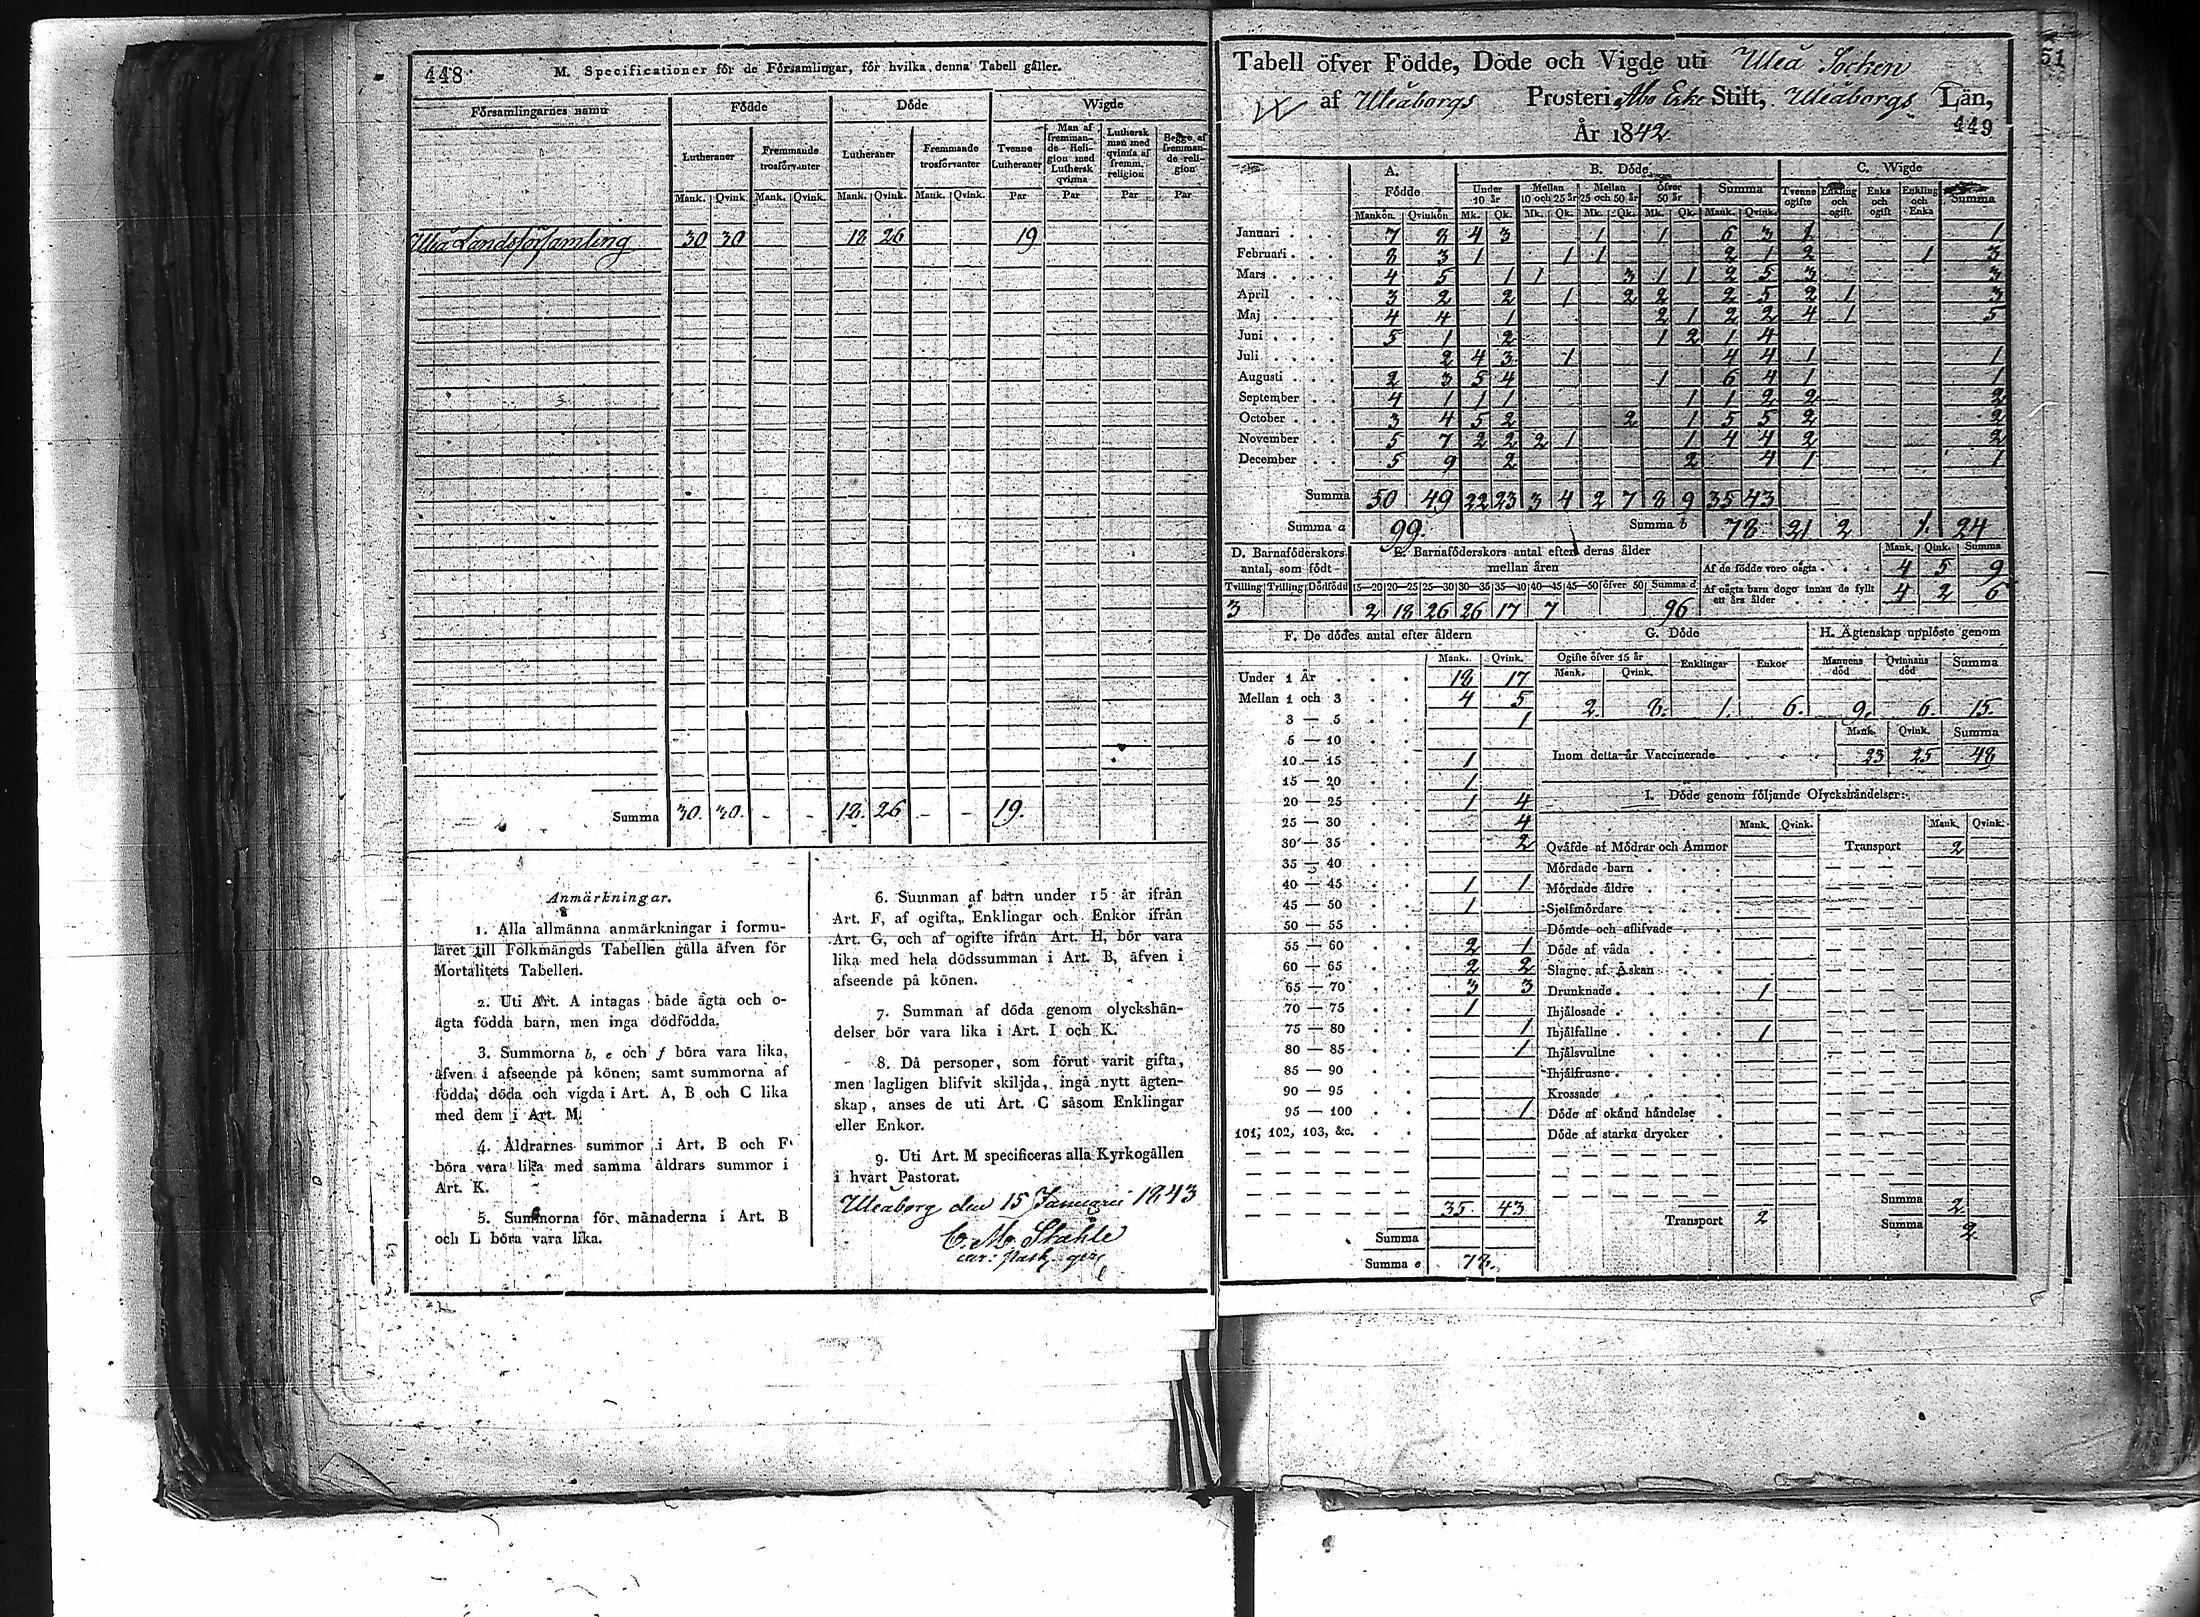 448
M. Specificationer för de Församlingar, för hvilka denna Tabell gäller.
Församlingarnes namn | Födde | Döde | Wigde
Lutheraner | Fremmande trosförvanter | Lutheraner | Fremmande trosförvanter | Tvenne Lutheraner | Man af fremmande Religion med Luthersk qvinna | Luthersk man med qvinna af fremm. religion | Begge af fremmande religion
Mank. Qvink. Mank. Qvink. Mank. Qvink. Mank. Qvink. Par Par Par Par
Uleå Landsförsamling 30 30 18 26 19
Summa 30. 30. - - 18. 26 - - 19.
Anmärkningar.
1. Alla allmänna anmärkningar i formu-
läret till Folkmängds Tabellen gälla äfven för
Mortalitets Tabellen.
2. Uti Art. A intagas både ägta och o-
ägta födda barn, men inga dödfödda.
3. Summorna b, e och f böra vara lika,
äfven i afseende på könen; samt summorna af
födda, döda och vigda i Art. A, B och C lika
med dem i Art. M.
4. Åldrarnes summor i Art. B och F
böra vara lika med samma åldrars summor i
Art. K.
5. Summorna för månaderna i Art. B
och L böra vara lika.
6. Summan af barn under 15 år ifrån
Art. F, af ogifta, Enklingar och Enkor ifrån
Art. G, och af ogifte ifrån Art. H, bör vara
lika med hela dödssumman i Art. B, äfven i
afseende på könen.
7. Summan af döda genom olyckshän-
delser bör vara lika i Art. I och K.
8. Då personer, som förut varit gifta,
men lagligen blifvit skiljda, ingå nytt ägten-
skap, anses de uti Art. C såsom Enklingar
eller Enkor.
9. Uti Art. M specificeras alla Kyrkogällen
i hvart Pastorat.
Uleåborg den 15 Januarii 1843
C. M. Ståhle
51
Tabell öfver Födde, Döde och Vigde uti Uleå Socken
af Uleåborgs Prosteri, Åbo Erke Stift, Uleåborgs Län,
År 1842
449
A. Födde | B. Döde | C. Wigde
Under 10 år | Mellan 10 och 25 år | Mellan 25 och 50 år | Öfver 50 år | Summa | Tvenne ogifte | Enkling och ogift | Enka och ogift | Enkling och Enka | Summa
Mankön. Qvinkön Mk. Qk. Mk. Qk. Mk. Qk. Mk. Qk. Mank. Qvink.
Januari . . . 7 8 4 3 1 1 6 3 1 1
Februari . . . 8 3 1 1 1 2 1 2 1 3
Mars . . . . 4 5 1 1 3 1 1 2 5 3 3
April . . . . 3 2 2 1 2 2 2 5 2 1 3
Maj . . . . 4 4 1 2 1 2 2 4 1 5
Juni . . . . 5 1 2 1 2 1 4
Juli . . . . 2 4 3 1 4 4 1 1
Augusti . . . 2 3 5 4 1 6 4 1 1
September . . 4 1 1 1 1 1 2 2 2
October . . . 3 4 5 2 2 1 5 5 2 2
November . . 5 7 2 2 2 1 1 4 4 2 2
December . . 5 9 2 2 4 1 1
Summa 50 49 22 23 3 4 2 7 8 9 35 43
Summa a 99. Summa b 78 21 2 1. 24
D. Barnaföderskors antal, som födt
Tvilling Trilling Dödfödd
3
E. Barnaföderskors antal efter deras ålder mellan åren
15—20 20—25 25—30 30—35 35—40 40—45 45—50 öfver 50 Summa d
2 18 26 26 17 7 96
Mank. Qink. Summa
Af de födde voro oägta . . . 4 5 9
Af oägta barn dogo innan de fyllt ett års ålder . . . . 4 2 6
F. De dödes antal efter åldern
Mank. Qvink.
Under 1 År . . . 18 17
Mellan 1 och 3 . . 4 5
3 — 5 . . 1
5 — 10 . .
10 — 15 . . 1
15 — 20 . . 1
20 — 25 . . 1 4
25 — 30 . . 4
30 — 35 . . 2
35 — 40 . .
40 — 45 . . 1 1
45 — 50 . . 1
50 — 55 . .
55 — 60 . . 2 1
60 — 65 . . 2 2
65 — 70 . . 3 3
70 — 75 . . 1
75 — 80 . . 1
80 — 85 . . 1
85 — 90 . .
90 — 95 . .
95 — 100 . . 1
101, 102, 103, &c. . .
35. 43
Summa
Summa e 78.
G. Döde
Ogifte öfver 15 år | Enklingar | Enkor
Mank. Qvink.
2. 8. 1. 6.
H. Ägtenskap upplöste genom
Mannens död | Qvinnans död | Summa
9. 6. 15.
Mank. Qvink. Summa
Inom detta år Vaccinerade 23 25 48
I. Döde genom följande Olyckshändelser:
Mank. Qvink. Mank. Qvink.
Qväfde af Mödrar och Ammor Transport 2
Mördade barn . . .
Mördade äldre . . .
Sjelfmördare . . .
Dömde och aflifvade . .
Döde af våda . . .
Slagne af Åskan . . .
Drunknade . . . . 1
Ihjälosade . . . .
Ihjälfallne . . . . 1
Ihjälsvultne . . .
Ihjälfrusne . . . .
Krossade . . . .
Döde af okänd händelse .
Döde af starka drycker .
Transport 2
Summa 2
Summa 2